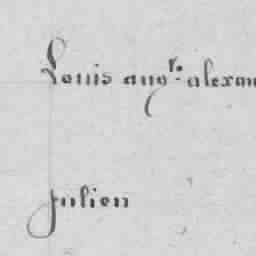 Louis aug.te alexan
julien